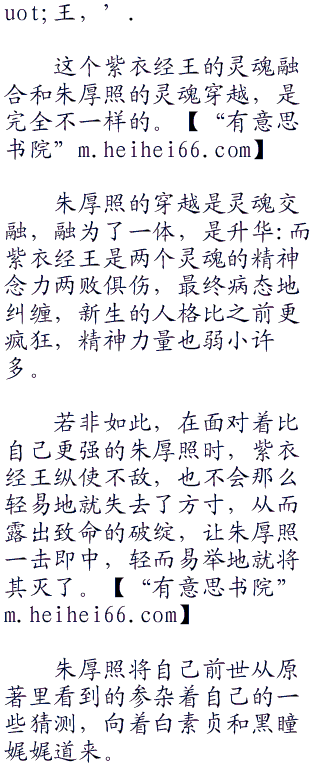 uot;王，’.
这个紫衣经王的灵魂融
合和朱厚照的灵魂穿越，是
完全不一样的。【“有意思
书院”m.heihei66.com】
朱厚照的穿越是灵魂交
融，融为了一体，是升华:而
紫衣经王是两个灵魂的精神
念力两败俱伤，最终病态地
纠缠，新生的人格比之前更
疯狂，精神力量也弱小许
多。
若非如此，在面对着比
自己更强的朱厚照时，紫衣
经王纵使不敌，也不会那么
轻易地就失去了方寸，从而
露出致命的破绽，让朱厚照
一击即中，轻而易举地就将
其灭了。【“有意思书院”
m.heihei66.com】
朱厚照将自己前世从原
著里看到的参杂着自己的一
些猜测，向着白素贞和黑瞳
娓娓道来。